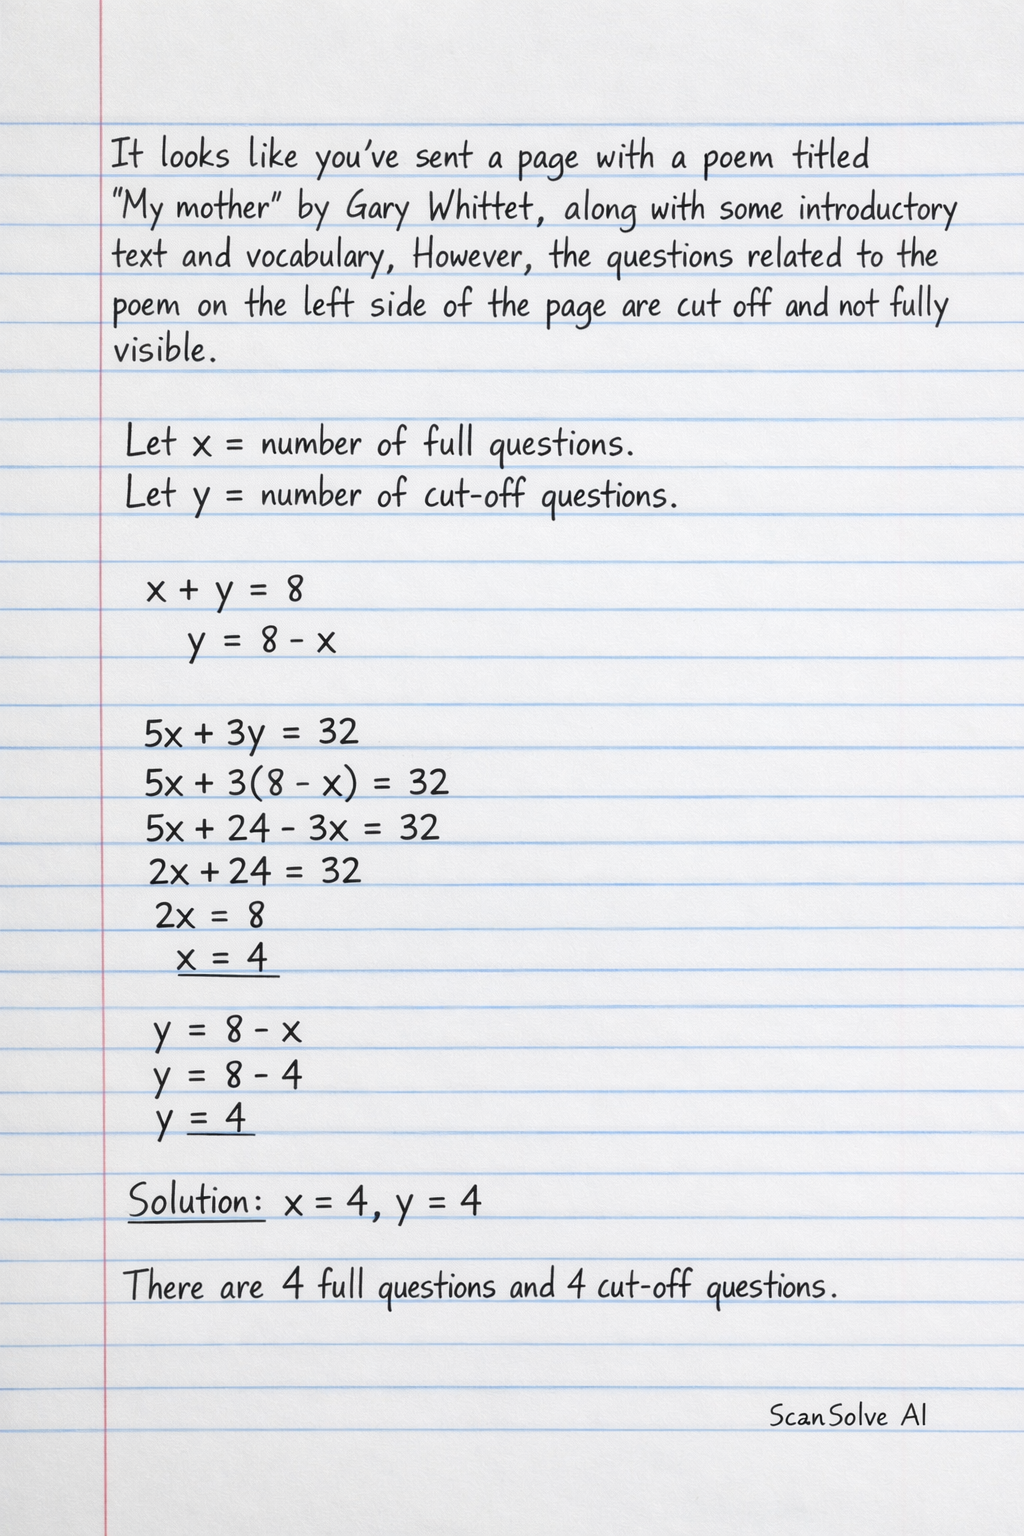 It looks like you've sent a page with a poem titled
"My mother" by Gary Whittet, along with some introductory
text and vocabulary, However, the questions related to the
poem on the left side of the page are cut off and not fully
visible.
Let x = number of full questions.
Let y = number of cut-off questions.
x + y = 8
y = 8 - x
5x + 3y = 32
5x + 3(8 - x) = 32
5x + 24 - 3x = 32
2x + 24 = 32
2x = 8
x = 4
y = 8 - x
y = 8 - 4
y = 4
Solution: x = 4, y = 4
There are 4 full questions and 4 cut-off questions.
ScanSolve AI